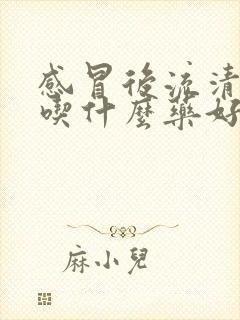 感冒後流清
喫什麼藥好
麻小兒